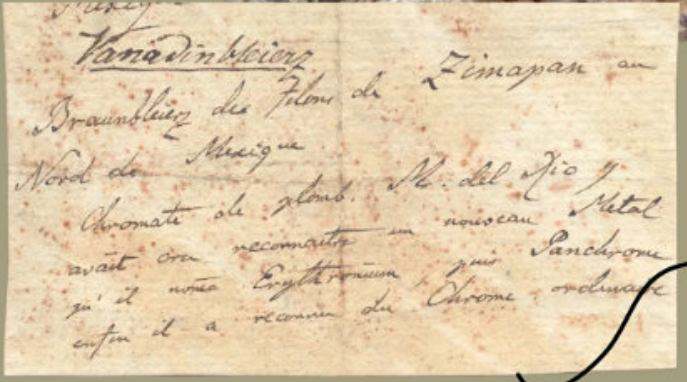 Mexique
Vanadinbleierz
Braunbleierz des filons de Zimapan au
Nord de Mexique
Chromate de plomb. M. del Rio y
avait cru reconnaitre un nouveau Metal
qu'il noma Erythronium, puis Panchrome
enfin il a reconnu du Chrome ordinaire